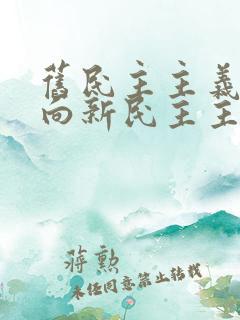 舊民主主義
向新民主主
蔣勲
未經同意禁止轉載